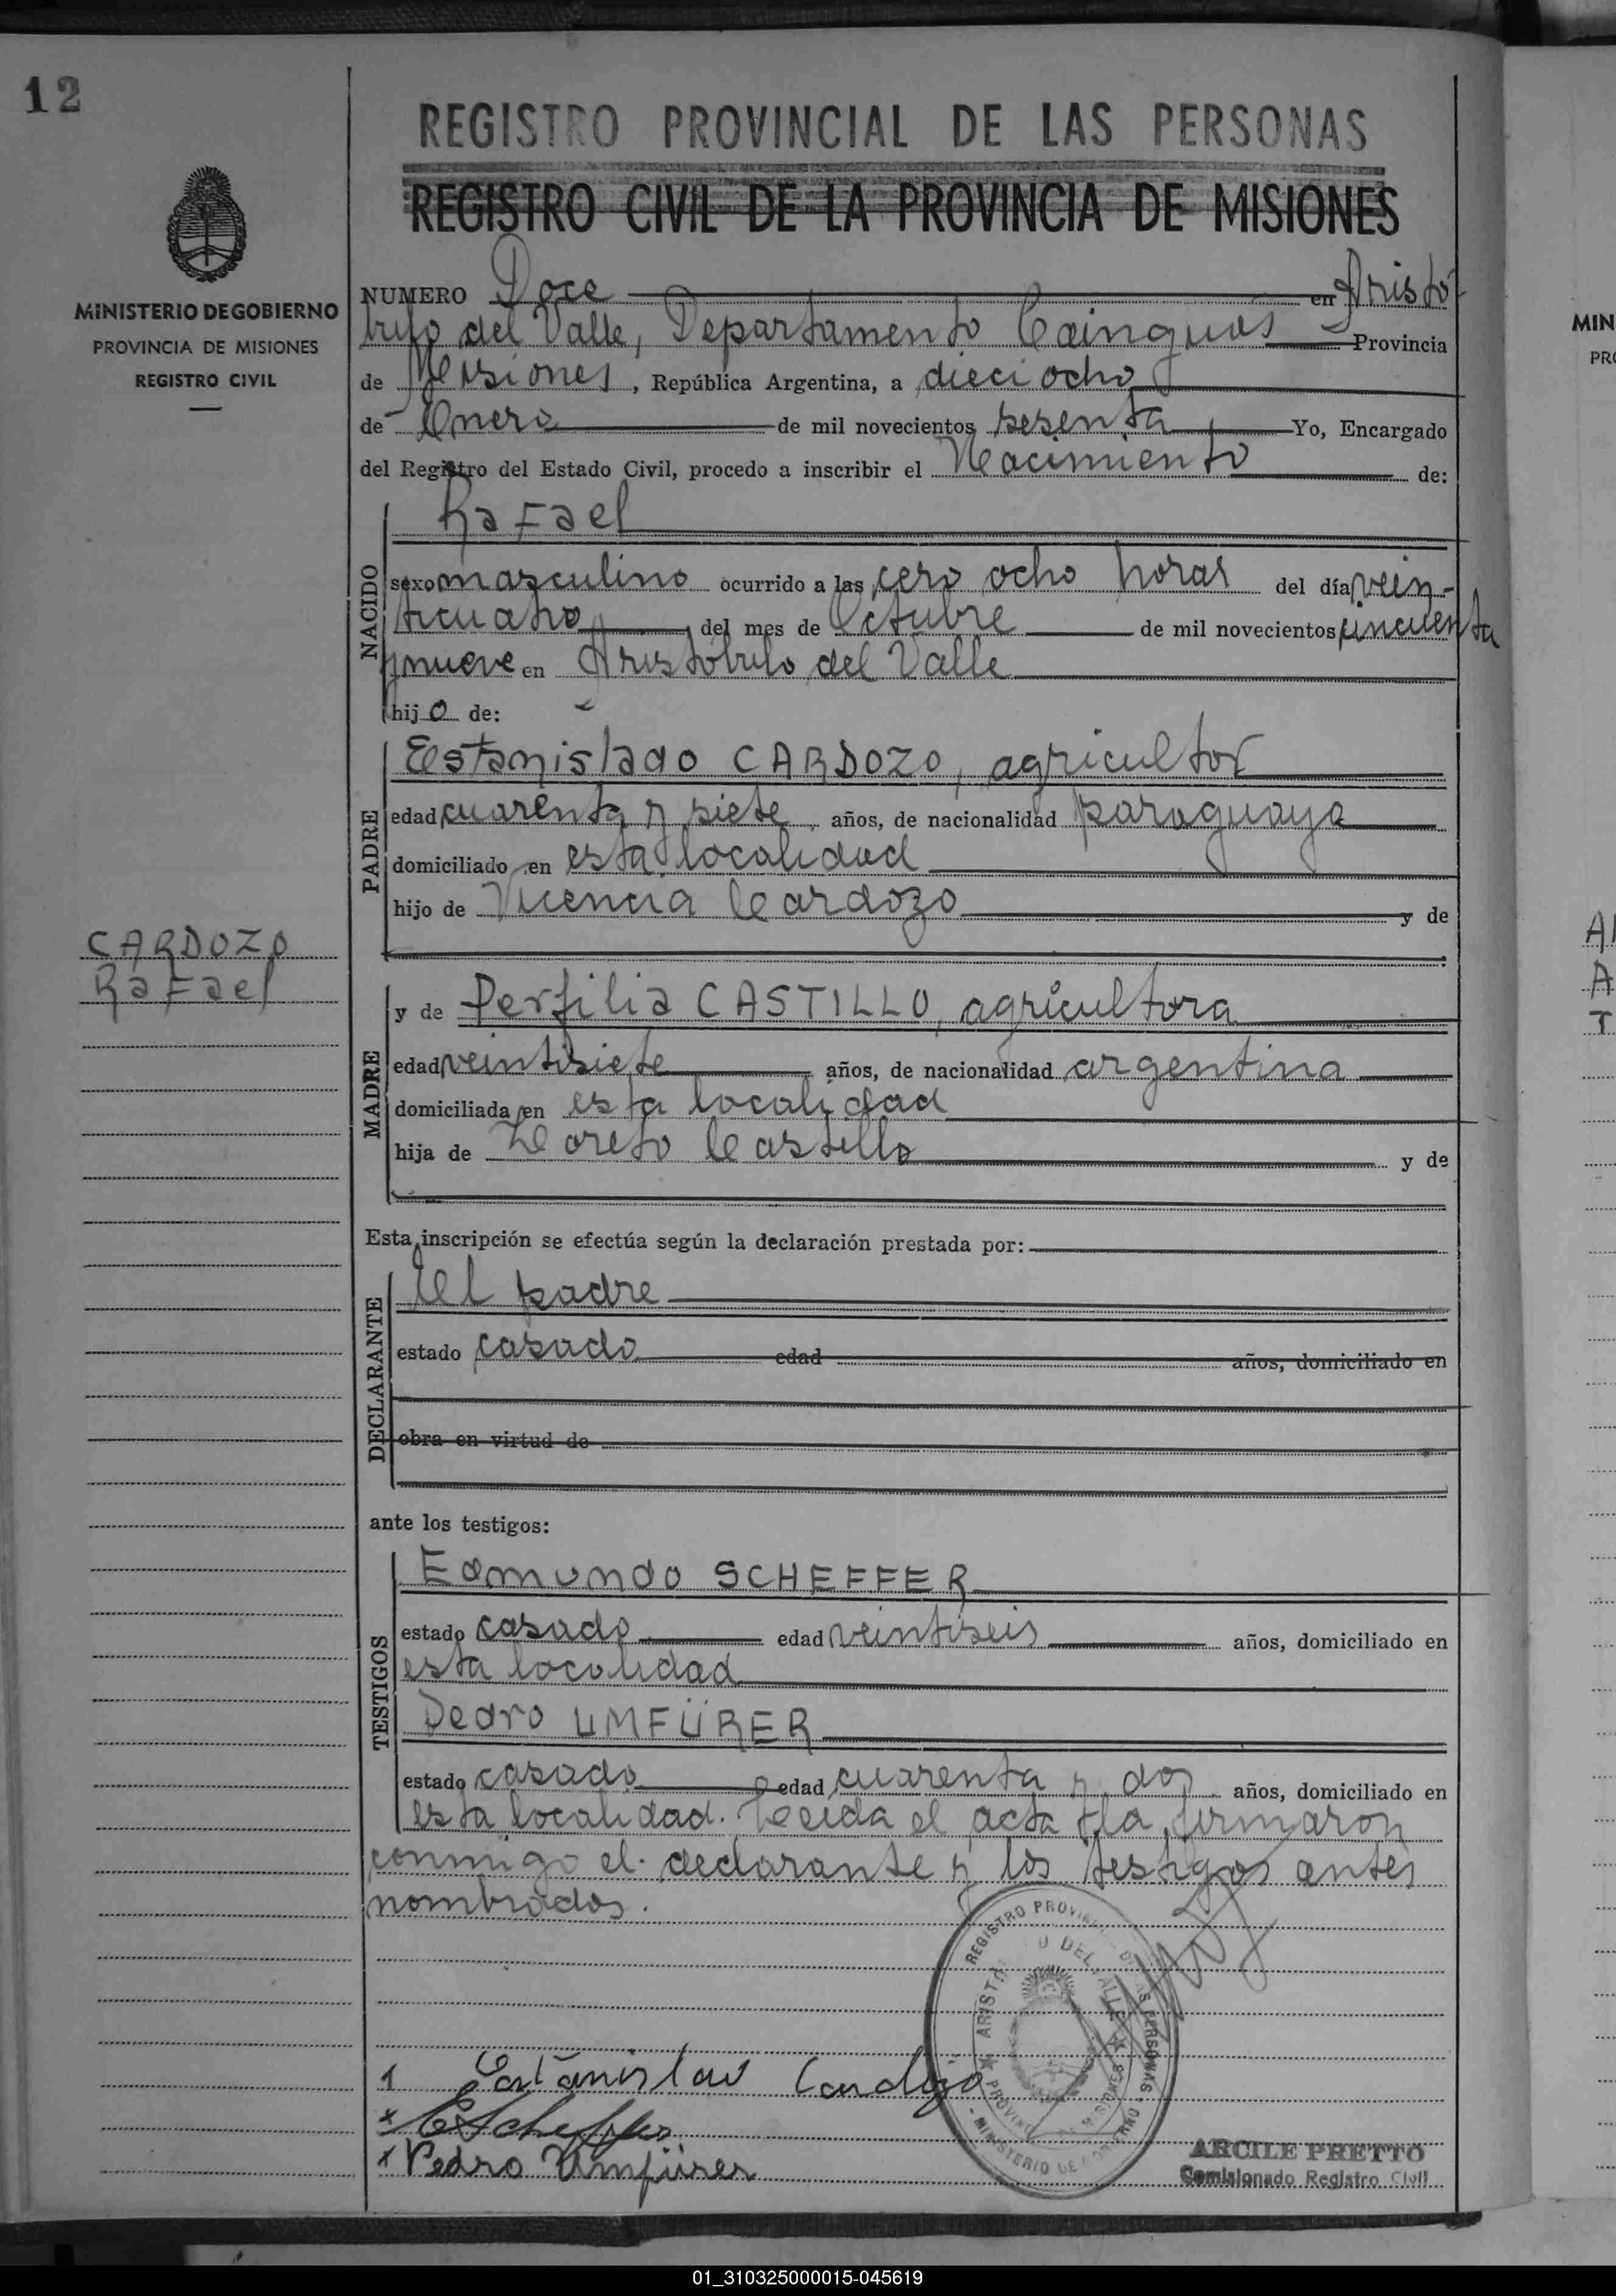 12
REGISTRO PROVINCIAL DE LAS PERSONAS
REGISTRO CIVIL DE LA PROVINCIA DE MISIONES
MINISTERIO DE GOBIERNO
PROVINCIA DE MISIONES
REGISTRO CIVIL
NUMERO Doce en Aristó
bulo del Valle, Departamento Cainguás Provincia
de Misiones, República Argentina, a dieciocho
de Enero de mil novecientos sesenta Yo, Encargado
del Registro del Estado Civil, procedo a inscribir el Nacimiento de:
NACIDO
Rafael
sexo masculino ocurrido a las cero ocho horas del día vein-
ticuatro del mes de Octubre de mil novecientos cincuenta
y nueve en Aristóbulo del Valle
hijo de:
PADRE
Estanislado CARDOZO, agricultor
edad cuarenta y siete años, de nacionalidad paraguaya
domiciliado en esta localidad
hijo de Vicencia Cardozo y de
CARDOZO
Rafael
MADRE
y de Perfilia CASTILLO, agricultora
edad veintisiete años, de nacionalidad argentina
domiciliada en esta localidad
hija de Loreto Castillo y de
Esta inscripción se efectúa según la declaración prestada por:
DECLARANTE
el padre
estado casado edad años, domiciliado en
obra en virtud de
ante los testigos:
TESTIGOS
Edmundo SCHEFFER
estado casado edad veintiseis años, domiciliado en
esta localidad
Pedro UMFÜRER
estado casado edad cuarenta y dos años, domiciliado en
esta localidad. Leída el acta la firmaron
conmigo el declarante y los testigos antes
nombrados.
REGISTRO PROVINCIAL DE LAS PERSONAS
ARISTOBULO DEL VALLE
PROVINCIA DE MISIONES
MINISTERIO DE GOBIERNO
1 Estanislao Cardozo
x EScheffer
x Pedro Umfürer
ARCILE PRETTO
Comisionado Registro Civil
MIN
PR
A
A
T
01_310325000015-045619